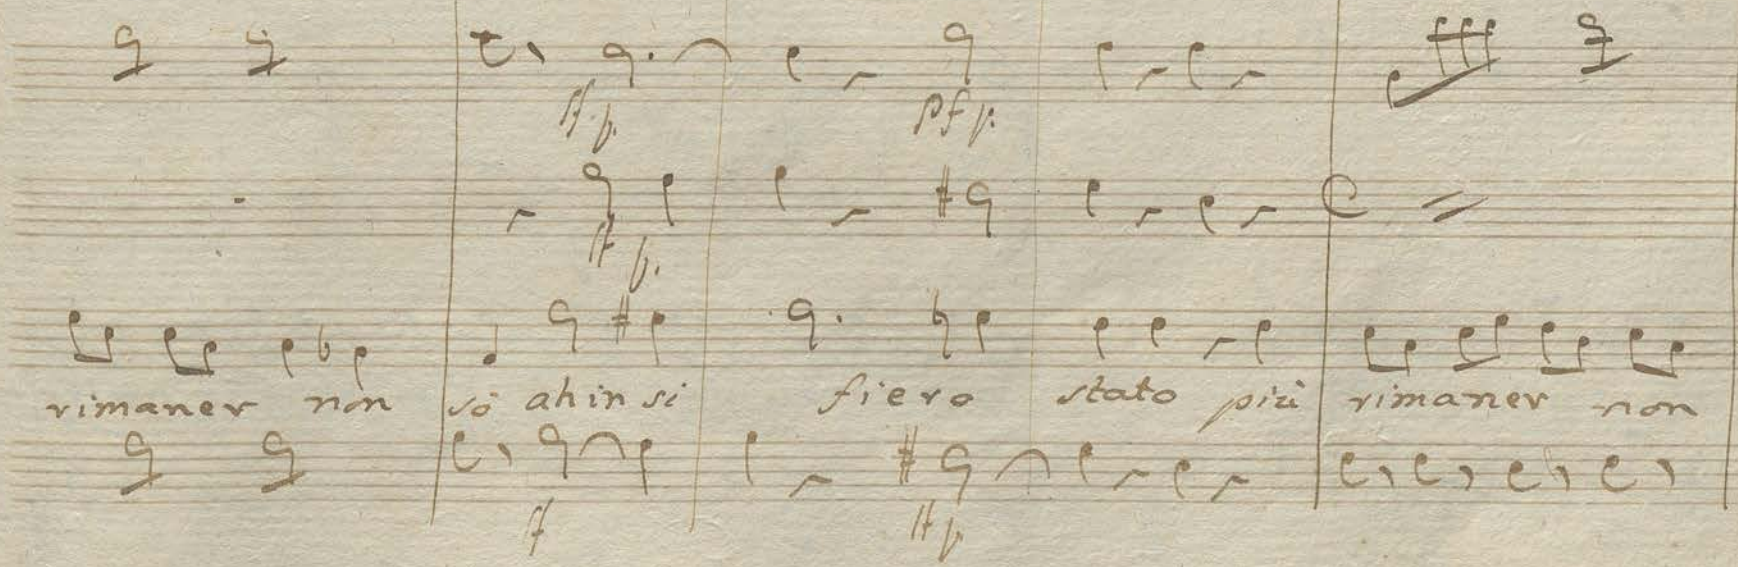 ff p.
pf p.
ff p.
rimaner non só ah in si fiero stato più rimaner non
ff
ff p.